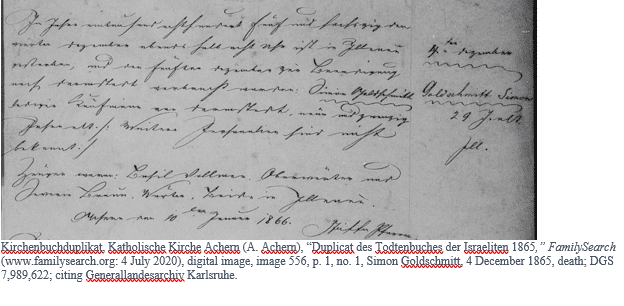 Im Jahre eintausend achthundert fünf und sechszig den
vierten Dezember abends halb acht Uhr ist in Illenau
gestorben, und den fünften Dezember zur Beerdigung
nach Darmstadt verbracht worden: Simon Goldschmitt
lediger Kaufmann von Darmstadt, neun und zwanzig
Jahre alt ./: Weitere Personalien sind nicht
bekannt ./
Zeugen waren: Basil Vollmer, Oberwärter und
Severin Braun, Wärter, Beide in Illenau.
Achern den 10ten Januar 1866.
4ten Dezember
Goldschmitt Simon
29 J. alt
Ill.
Kirchenbuchduplikat, Katholische Kirche Achern (A. Achern), “Duplicat des Todtenbuches der Israeliten 1865,” FamilySearch
(www.familysearch.org: 4 July 2020), digital image, image 556, p. 1, no. 1, Simon Goldschmitt, 4 December 1865, death; DGS
7,989,622; citing Generallandesarchiv Karlsruhe.